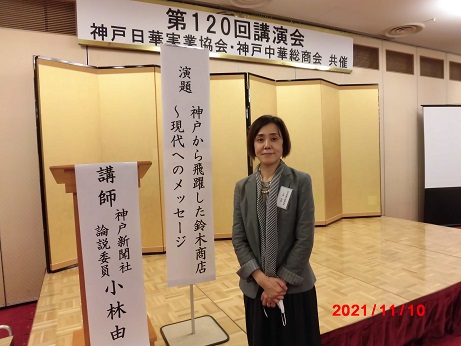 第120回講演会
神戸日華実業協会・神戸中華総商会 共催
演題 神戸から飛躍した鈴木商店
～現代へのメッセージ
講師 神戸新聞社
論説委員 小林由
2021/11/10